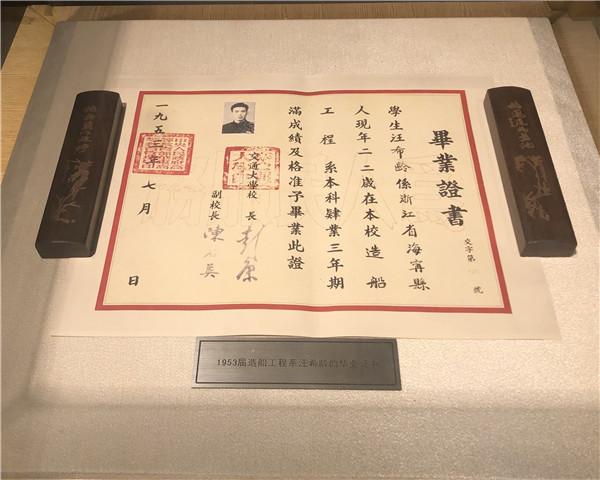 畢業證書
交字第 號
學生汪希齡係浙江省海寧縣
人現年二二歲在本校造船
工程系本科肄業三年期
滿成績及格准予畢業此證
交通大學校長 彭康
副校長 陳石英
一九五三年 七月 日
1953届造船工程系汪希龄的毕业证书